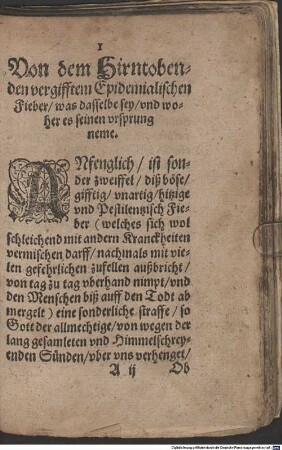 1
Von dem Hirntoben-
den vergifftem Epidemialischen
Fieber/ was dasselbe sey/ vnd wo-
her es seinen vrsprung
neme.
ANfenglich/ ist son-
der zweiffel/ diß böse/
gifftig/ vnartig/ hitzige
vnd Pestilentzisch Fie-
ber (welches sich wol
schleichend mit andern Kranckheiten
vermischen darff/ nachmals mit vie-
len gefehrlichen zufellen außbricht/
von tag zu tag vberhand nimpt/ vnd
den Menschen biß auff den Todt ab
mergelt) eine sonderliche straffe/ so
Gott der allmechtige/ von wegen der
lang gesamleten vnd Himmelschrey-
enden Sünden/ vber vns verhenget/
A ij Ob